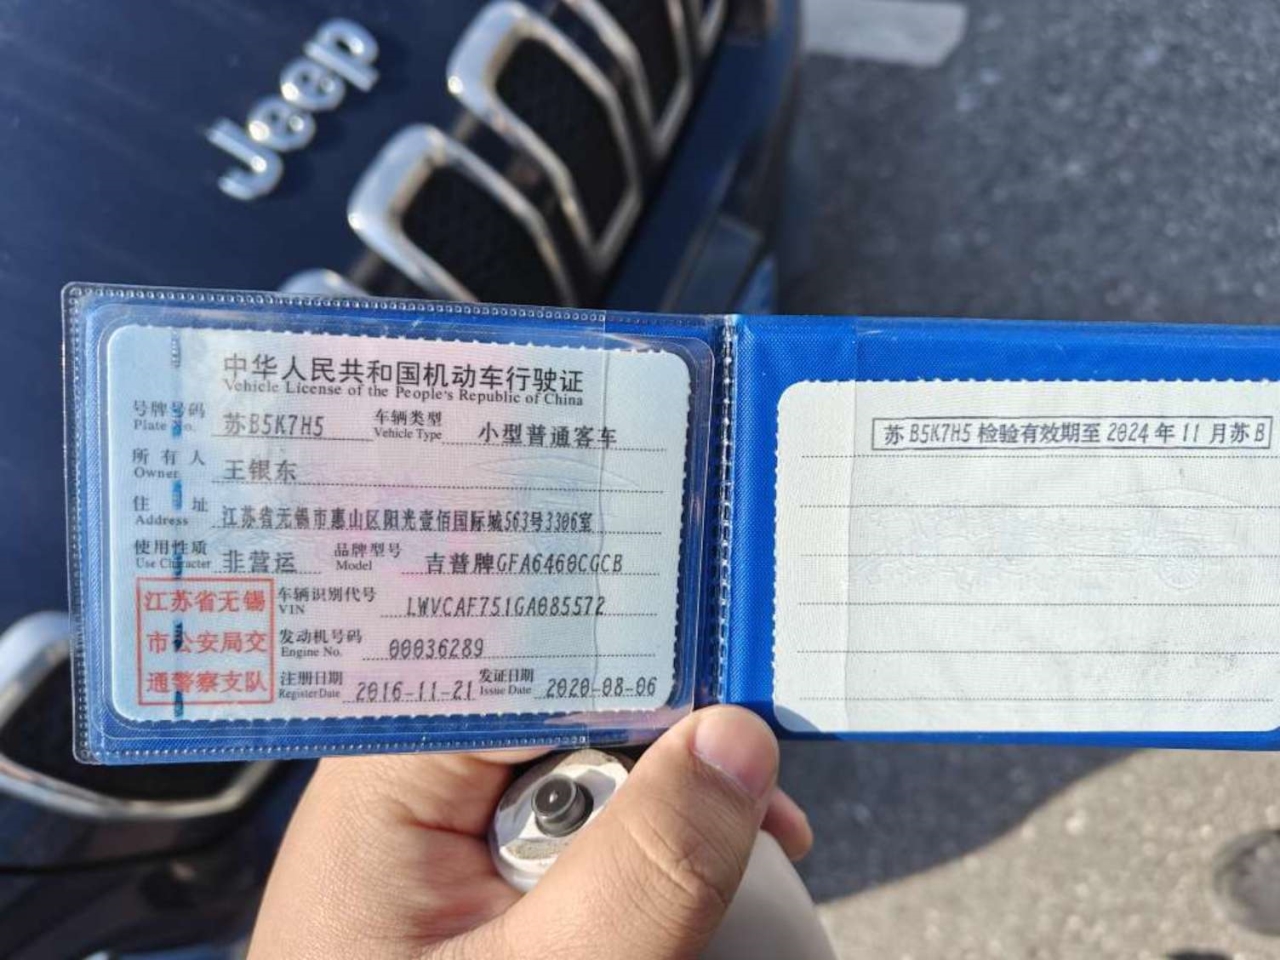 Jeep
中华人民共和国机动车行驶证
Vehicle License of the People's Republic of China
号牌号码 苏B5K7H5 车辆类型 小型普通客车
Plate No. Vehicle Type
所有人 王银东
Owner
住址 江苏省无锡市惠山区阳光壹佰国际城563号3306室
Address
使用性质 非营运 品牌型号 吉普牌GFA6460CGCB
Use Character Model
江苏省无锡
市公安局交
通警察支队
车辆识别代号 LWVCAF751GA085572
VIN
发动机号码 00036289
Engine No.
注册日期 2016-11-21 发证日期 2020-08-06
Register Date Issue Date
苏B5K7H5检验有效期至2024年11月苏B